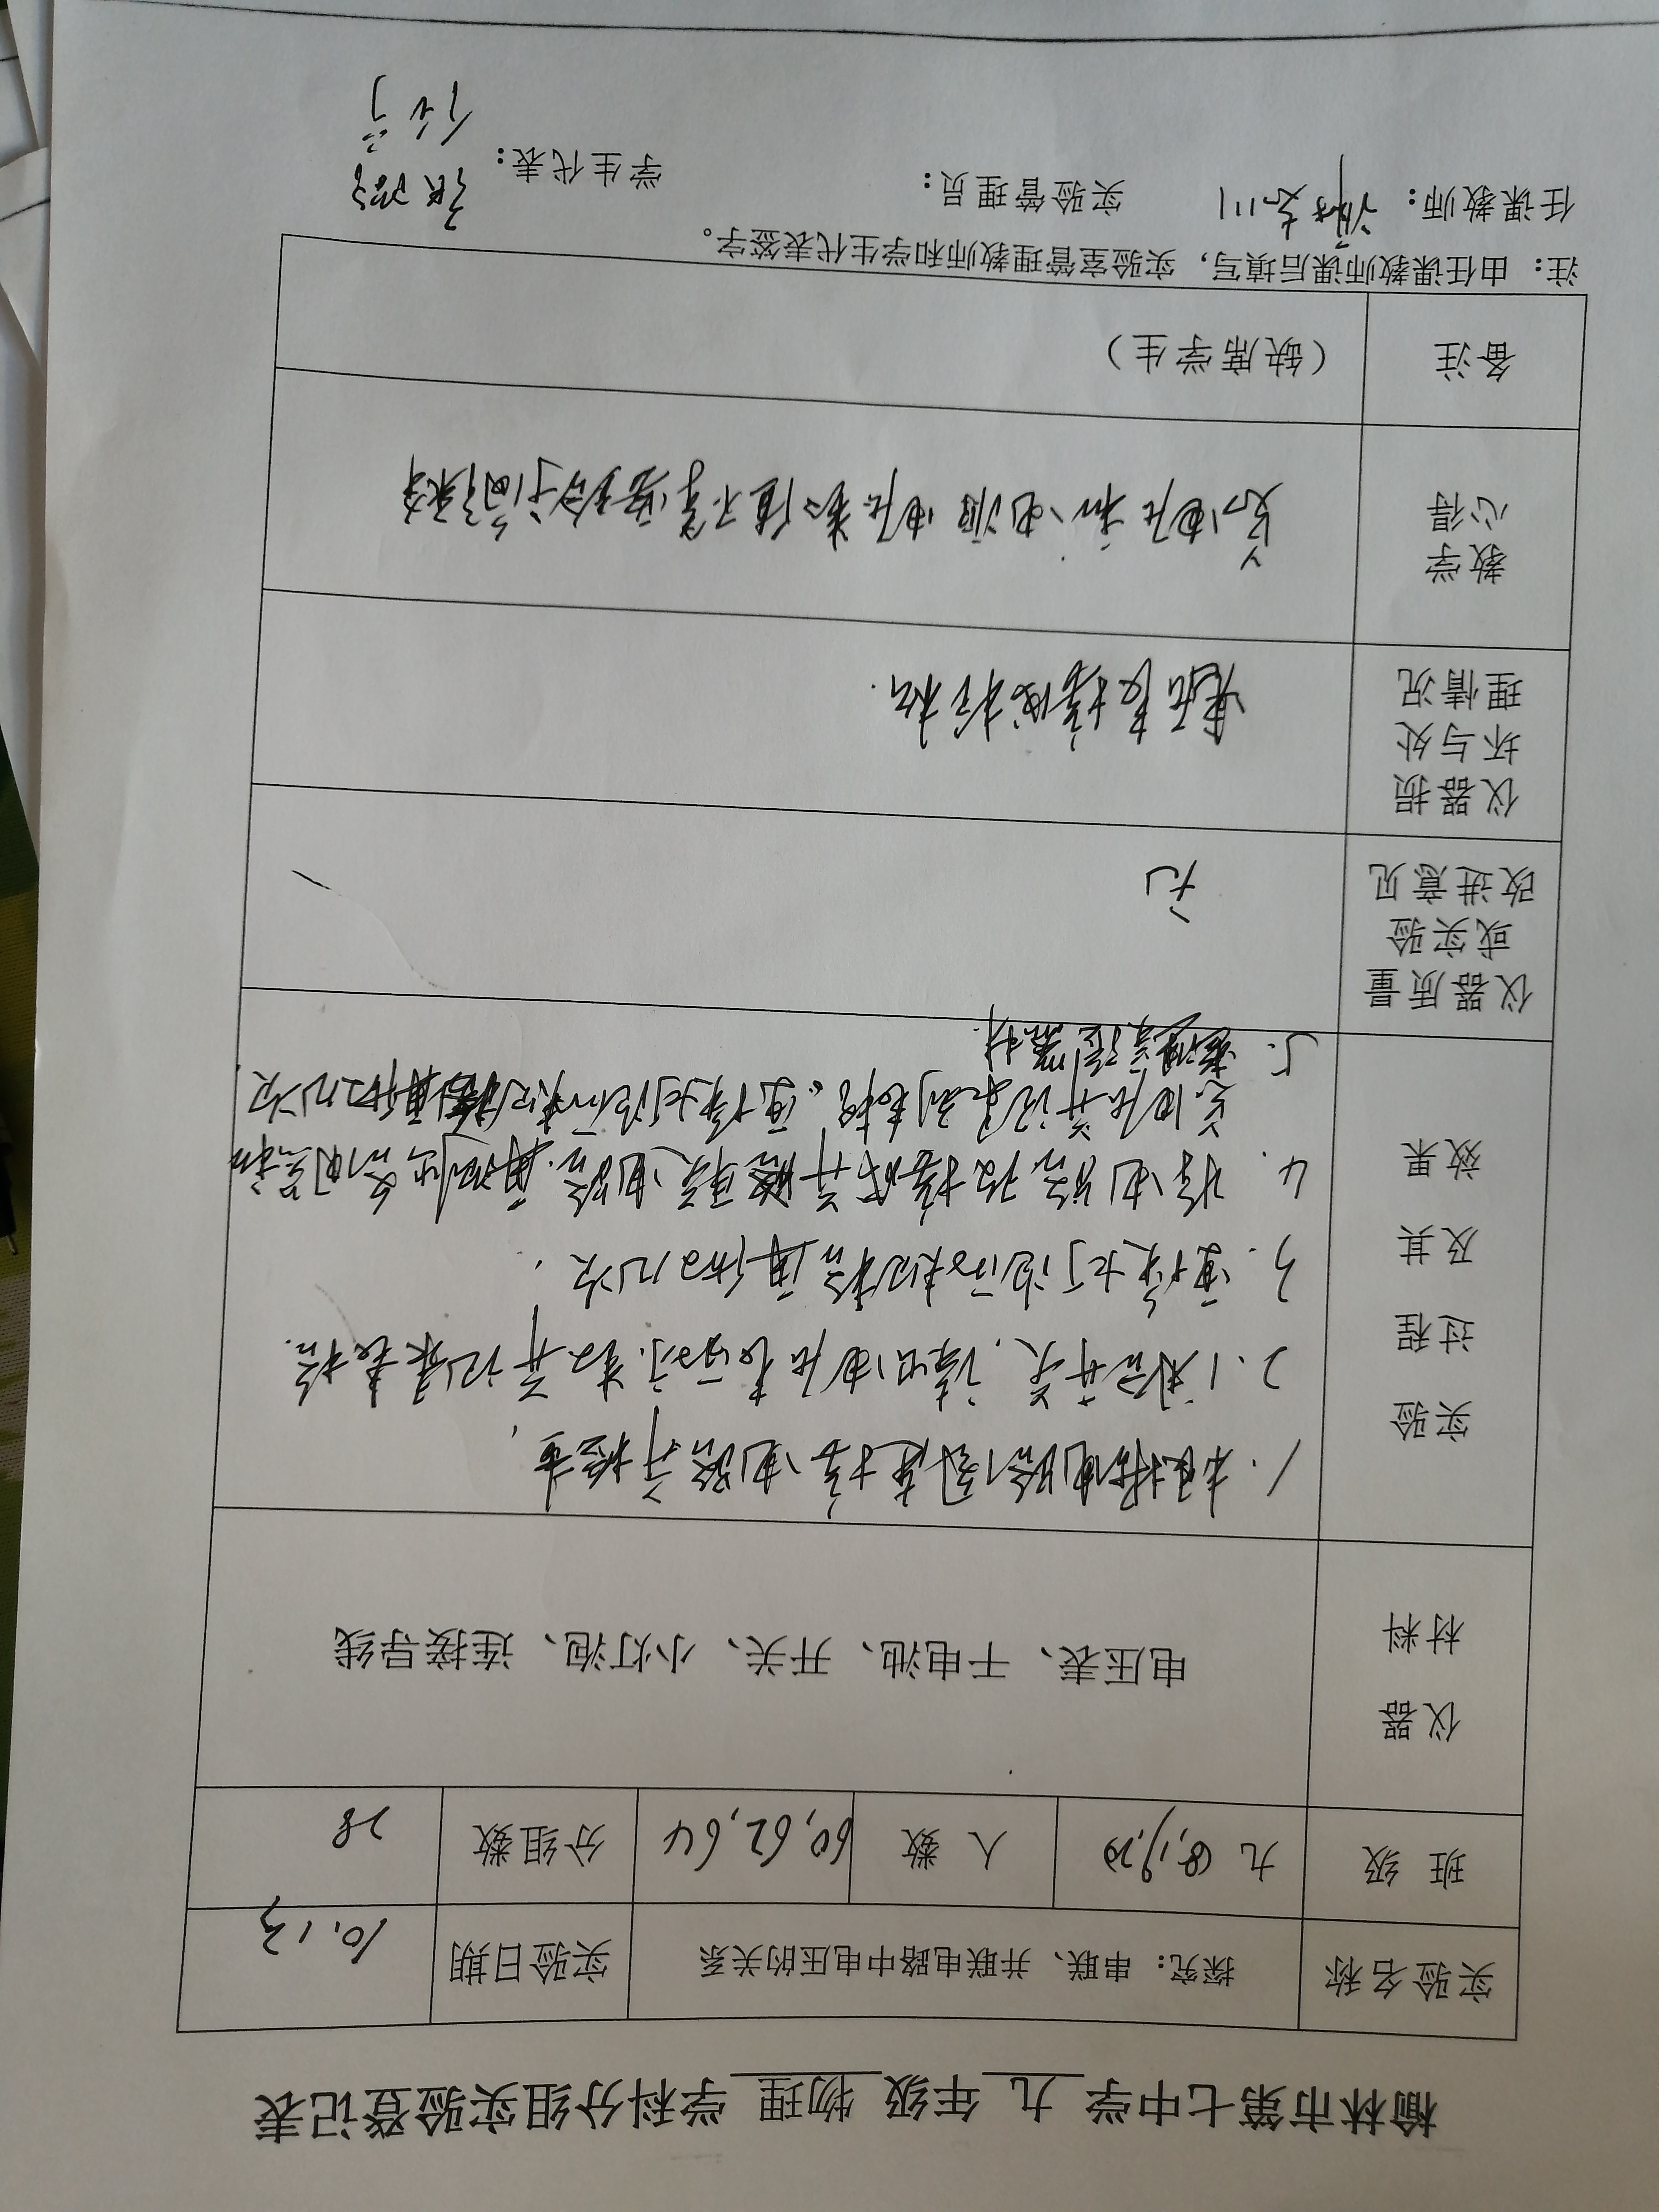 榆林市第七中学 九 年级 物理 学科分组实验登记表
实验名称 探究：串联、并联电路中电压的关系 实验日期 10.13
班 级 九 18,19,20 人 数 60,62,64 分组数 28
仪器
材料
电压表、干电池、开关、小灯泡、连接导线
实验
过程
及其
效果
1. 根据电路图连接电路并检查,
2. 闭合开关, 读出电压表的示数并记录表格.
3. 更换灯泡
4. 将电路改接成并联电路.
总电压并记录到表格。更换
5. 整理实验器材.
仪器质量
或实验
改进意见
无
仪器损
坏与处
理情况
教学
心得
总电压和电源电压数值不等
备注 （缺席学生）
注：由任课教师课后填写，实验室管理教师和学生代表签字。
任课教师： 实验管理员： 学生代表：